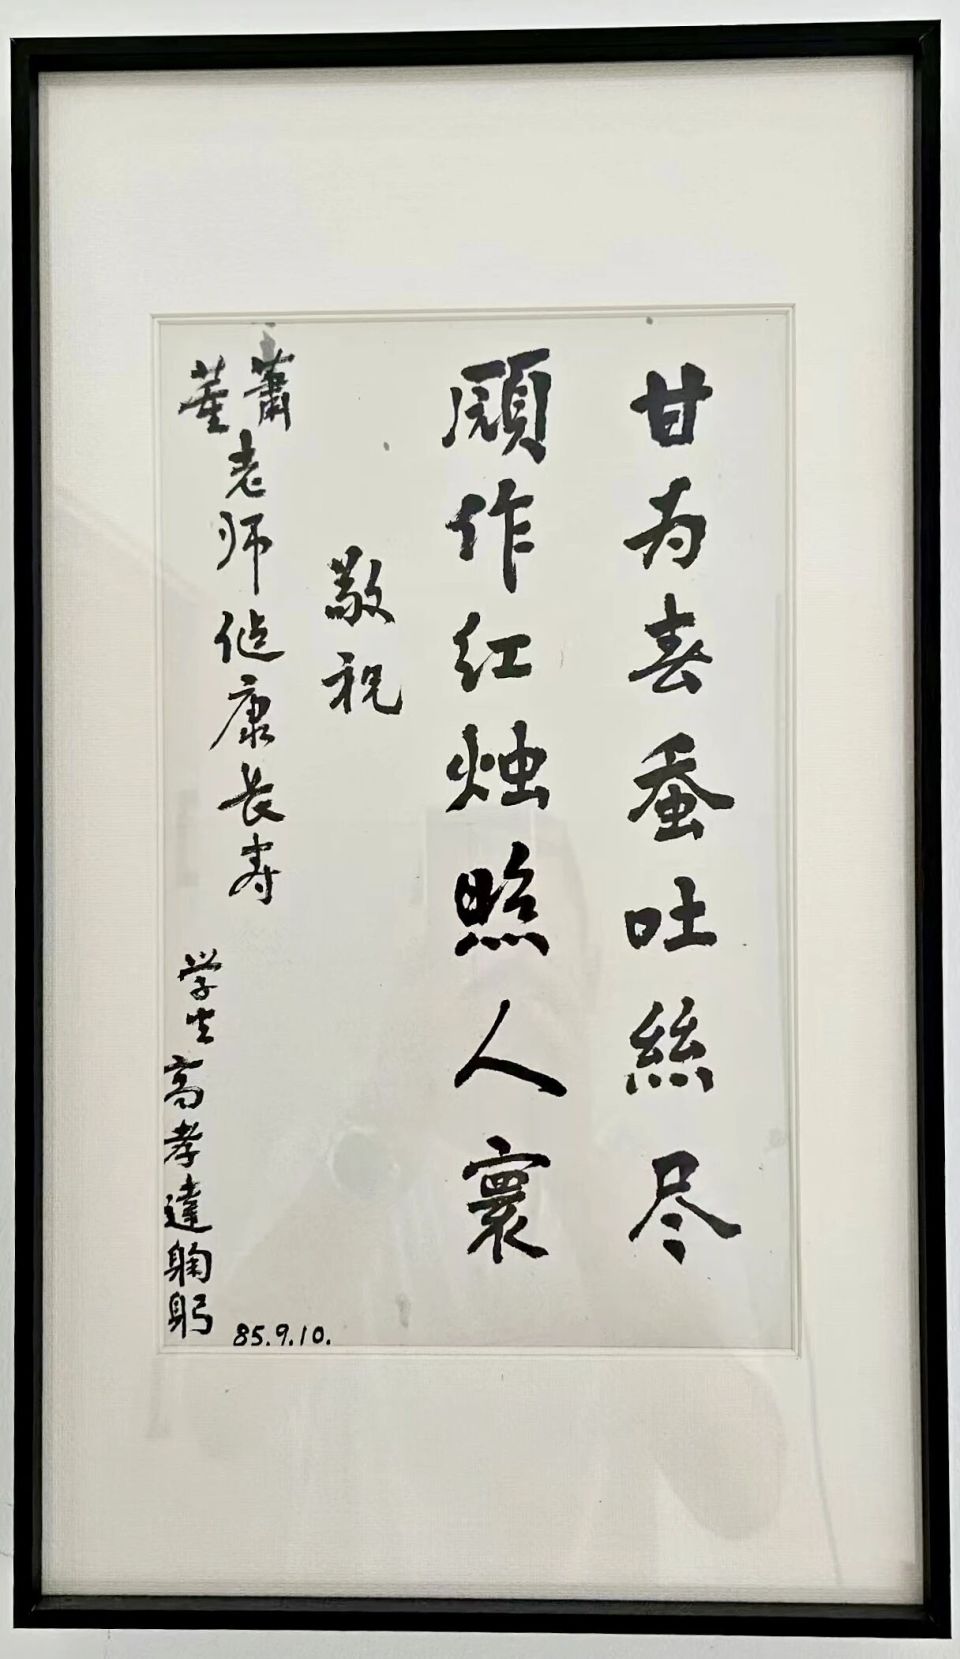 甘为春蚕吐絲尽
願作红烛照人寰
敬祝
蕭
董
老师健康长寿
学生高孝達鞠躬
85.9.10.